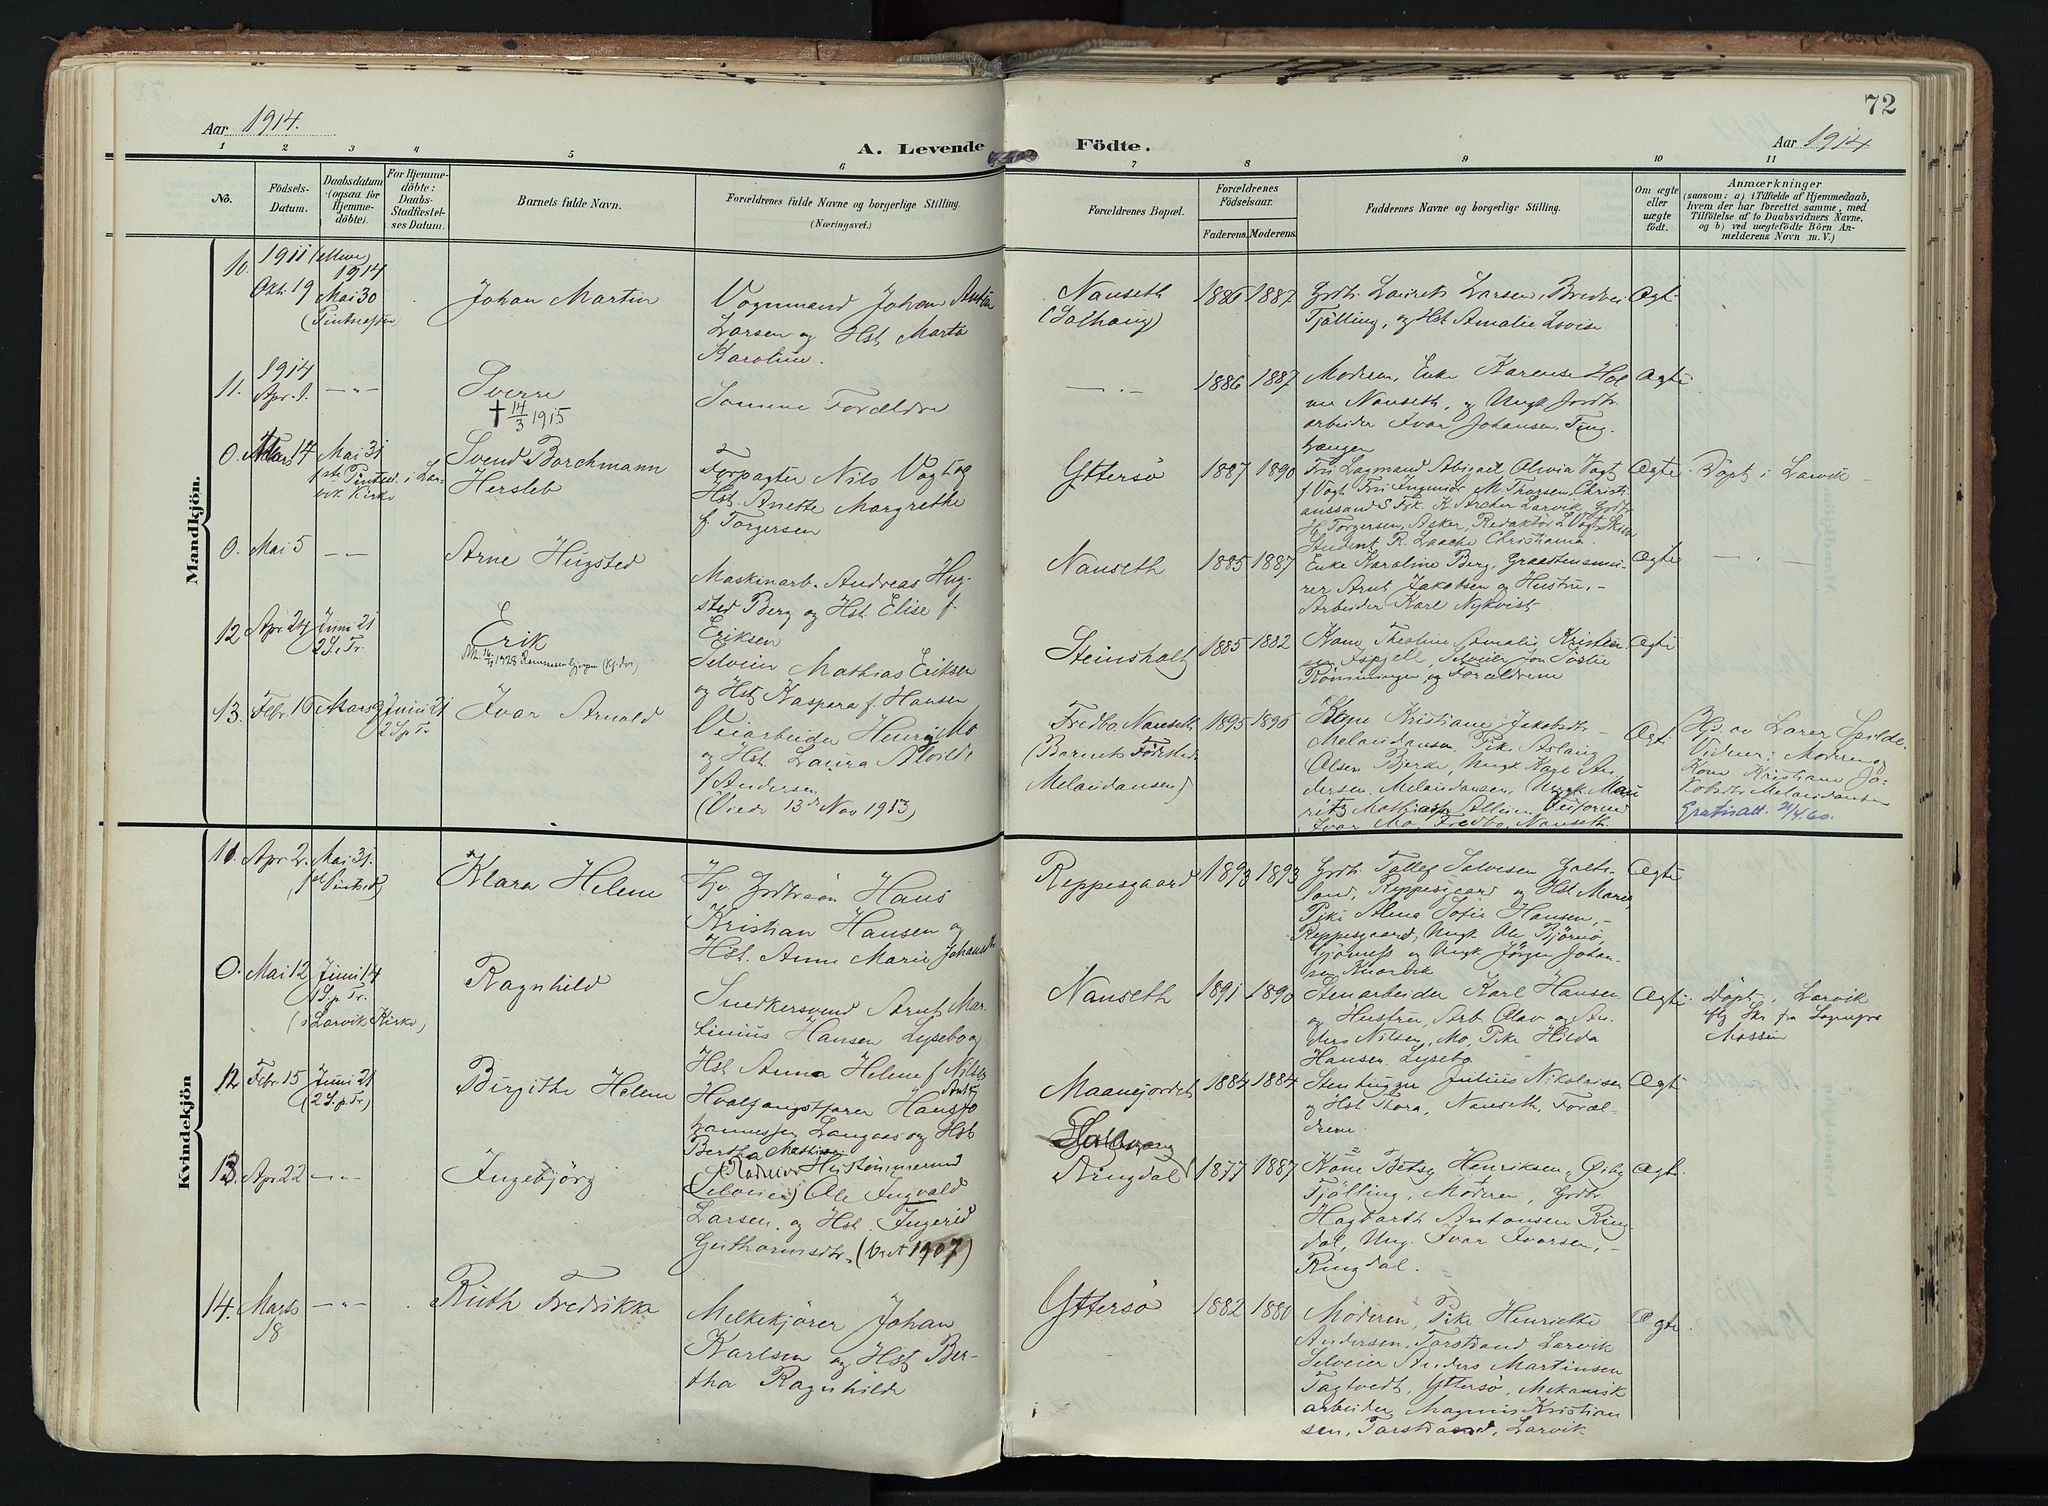 72
Aar 1914.
A. Levende
Födte.
Aar 1914
1 2 3 4 5 6 7 8 9 10 11
No.
Födsels-
Datum.
Daabsdatum
(ogsaa for
Hjemme-
döbte).
For Hjemme-
döbte:
Daabs-
Stadfæstel-
ses Datum.
Barnets fulde Navn.
Forældrenes fulde Navne og borgerlige Stilling.
(Næringsvei.)
Forældrenes Bopæl.
Forældrenes
Födselsaar.
Faderens. Moderens.
Faddernes Navne og borgerlige Stilling.
Om ægte
eller
uægte
födt.
Anmærkninger
(saasom: a) i Tilfælde af Hjemmedaab,
hvem der har forrettet samme, med
Tilföielse af to Daabsvidners Navne.
og b) ved uægtefödte Börn An-
melderens Navn m. V.)
Mandkjön.
10.
1911
Okt. 19
1914
Mai 30
Johan Martin
Vognmand Johan Anton
Larsen og Hst Marta
Karoline.
Nanseth
(Solhaug)
1886 1887
Grdbr. Laurits Larsen, Bredvei
Tjölling, og Hst Amalie Lovise
Ægte
11.
1914
Apr. 1.
— " —
Sverre
† 14/3 1915
Samme Forældre
— " —
1886 1887
Moderen, Enke Karense Hol
me Nanseth, og Ungk Jord
arbeider Ivar Johansen, Ting
haugen
Ægte
0.
Mars 14
Mai 31
1ste Pintsed. i Lar-
vik Kirke
Svend Borchmann
Hersleb
Forpagter Nils Vogt og
Hst. Anette Margrethe
f. Torgersen
Yttersö
1887 1890
Fru Lagmand Abigael Olivia Vogt
f. Vogt Fru Ingeniör M. Thorsen, Christi
anssand S Frk. K. Archer Larvik Grdbr
H. Torgersen, Asker, Redaktör L Vogt Skien
Student R. Laache Christiania.
Ægte
Döpt i Larvik
0.
Mai 5
— " —
Arne Hugsted
Maskinarb. Andreas Hug-
sted Berg og Hst Elise f.
Eriksen
Nanseth
1885 1887
Enke Karoline Berg, Graastensmu-
rer Arnt Jakobsen og Hustru, -
Arbeider Karl Nykvist
Ægte
— " —
12
Apr. 24
Juni 21
2 S. e Tr.
Erik
Selveier Mathias Eriksen
og Hst Kaspera f. Hansen
Steinsholt
1885 1882
Kone Theoline Amalie Kristen
sen Aspjell, Selveier Jon Tostie
Rönningen og Forældrene
Ægte
13.
Febr. 16
Mars 9
Juni 21
2 S p Tr.
Ivar Arnold
Veiarbeider Henrig Mo
og Hst. Laura Alvilde
f Andersen
(Viede 13de Nov 1913)
Fredbo, Nanseth
(Barnets Födested
Melaudansen)
1895 1895
Kone Kristiane Jakobsdtr
Melaudansen, Pike Aslaug
Olsen Bjerke, Ungk Karl An
dersen, Melaudansen, Ungk Mau
ritz Mathisen
Ivar Mo, Fredbo, Nanseth.
Ægte
Hjd. av Lærer Spilde.
Vidner: Moderen og
Kone Kristiane Ja-
kobsdtr Melaudansen
Gratisatt. 21/4.60.
Kvindekjön
11.
Apr 2.
Mai 31.
Klara Helene
Hans
Kristian Hansen og
Hst. Anna Marie Johansdtr
Reppesgaard
1893 1893
Grdbr. Tollef Salvesen Jolts-
lond, Reppesgaard og Hst Maren,
Pike Alma Sofie Hansen, -
Reppesgaard, Ungk Ole Björnö,
Gjönness og Ungk Jörgen Johan-
sen Kvardik
Ægte
0.
Mai 12
Juni 14
1 S. p. Tr.
(i Larvik Kirke)
Ragnhild
Snedkersvend Arnt Mar-
tinius Hansen Lysebo og
Hst Anna Helene f. Nilsen
Nanseth
1891 1890
Stenarbeider Karl Hansen
og Hustru, Arb. Olav og An
ders Nilsen, Mo, Pike Hilda
Hansen Lysebo
Ægte
Döpt i Larvik
12
Febr. 15
Juni 21
(2 S. p. Tr)
Birgithe Helene
Hvalfangstfører Hans Jo
hannessen Langaas og Hst
Bertha Mathisen
Maanejordet
1884 1884
Stenhugger Julius Nikolaisen
og Hst Thora, Nanseth, Foræl-
drene
Ægte
13.
Apr 22
— " —
Ingebjörg
(Selveier) Ole Ingvald
Larsen og Hst. Ingerid
Guthormsdtr. (Viet 1907)
Ringdal
1877 1887
Kone Betsy Henriksen, Öiby
Tjölling, Moderen, Grdbr.
Hagbarth Antonsen Ring
dal, Ung. Ivar Ivarsen, -
Ringdal.
Ægte
14.
Marts
18
— " —
Ruth Fredrikke
Melkekjörer Johan
Karlsen og Hst Ber-
tha Ragnhilde
Yttersö
1882 1880
Moderen, Pike Henriette
Andersen, Torstrand Larvik
Selveier Anders Martinsen
Tagtvedt, Yttersö, Mekanisk
arbeider Magnus Kristian
sen, Torstrand, Larvik
Ægte